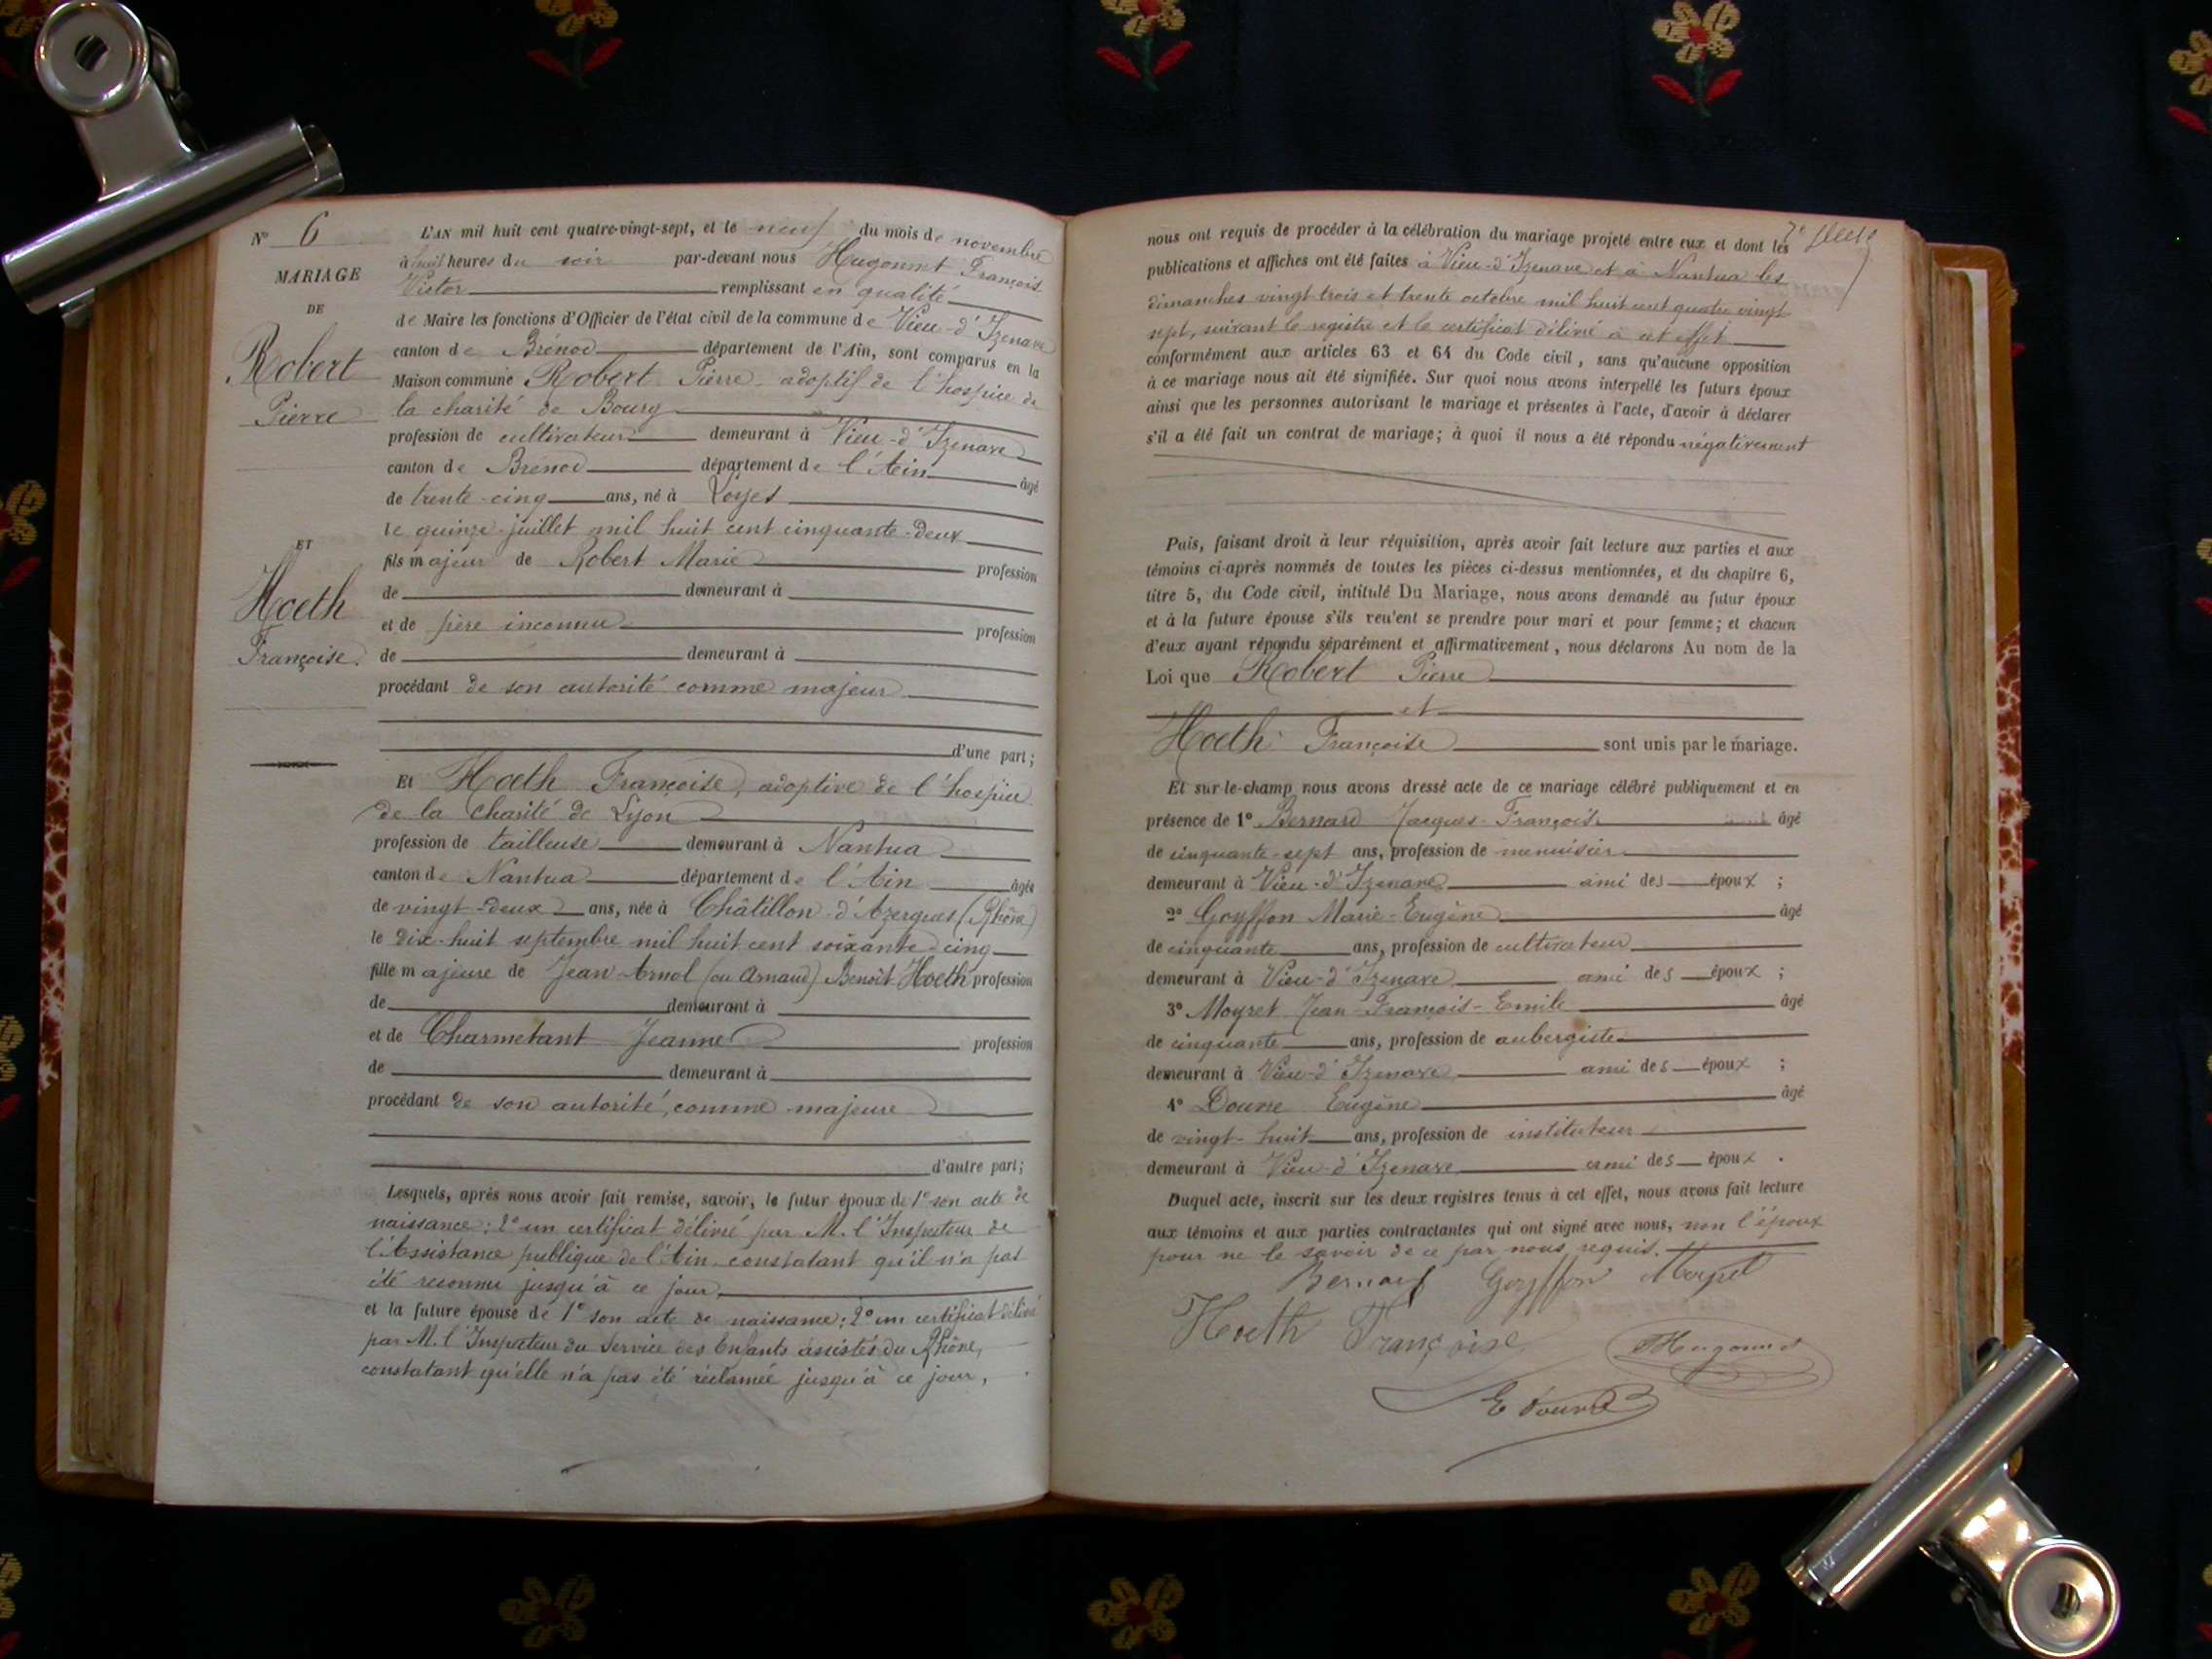 N° 6
MARIAGE
DE
Robert
Pierre
ET
Hoeth
Françoise.
L'AN mil huit cent quatre-vingt-sept, et le neuf du mois de novembre
à huit heures du soir par-devant nous Hugonnet François
Victor remplissant en qualité
de Maire les fonctions d'Officier de l'état civil de la commune de Vieu-d'Izenave
canton de Brénod département de l'Ain, sont comparus en la
Maison commune Robert Pierre adoptif de l'hospice de
la charité de Bourg
profession de cultivateur demeurant à Vieu-d'Izenave
canton de Brénod département de l'Ain âgé
de trente-cinq ans, né à Loyes
le quinze juillet mil huit cent cinquante-deux
fils majeur de Robert Marie profession
de demeurant à
et de père inconnu profession
de demeurant à
procédant de son autorité comme majeur
d'une part;
Et Hoeth Françoise, adoptive de l'hospice
de la charité de Lyon
profession de tailleuse demeurant à Nantua
canton de Nantua département de l'Ain âgée
de vingt-deux ans, née à Châtillon-d'Azergues (Rhône)
le dix-huit septembre mil huit cent soixante cinq
fille majeure de Jean-Arnol (ou Arnaud) Benoît Hoeth profession
de demeurant à
et de Charmetant Jeanne profession
de demeurant à
procédant de son autorité, comme majeure
d'autre part;
Lesquels, après nous avoir fait remise, savoir, le futur époux de 1° son acte de
naissance: 2° un certificat délivré par M. l'Inspecteur de
l'Assistance publique de l'Ain constatant qu'il n'a pas
été reconnu jusqu'à ce jour
et la future épouse de 1° son acte de naissance: 2° un certificat délivré
par M. l'Inspecteur du Service des Enfants assistés du Rhône,
constatant qu'elle n'a pas été réclamée jusqu'à ce jour,
nous ont requis de procéder à la célébration du mariage projeté entre eux et dont les
publications et affiches ont été faites à Vieu-d'Izenave et à Nantua les
dimanches vingt trois et trente octobre mil huit cent quatre vingt
sept, suivant le registre et le certificat délivré à cet effet
conformément aux articles 63 et 64 du Code civil, sans qu'aucune opposition
à ce mariage nous ait été signifiée. Sur quoi nous avons interpellé les futurs époux
ainsi que les personnes autorisant le mariage et présentes à l'acte, d'avoir à déclarer
s'il a été fait un contrat de mariage; à quoi il nous a été répondu négativement
Puis, faisant droit à leur réquisition, après avoir fait lecture aux parties et aux
témoins ci-après nommés de toutes les pièces ci-dessus mentionnées, et du chapitre 6,
titre 5, du Code civil, intitulé Du Mariage, nous avons demandé au futur époux
et à la future épouse s'ils veulent se prendre pour mari et pour femme; et chacun
d'eux ayant répondu séparément et affirmativement, nous déclarons Au nom de la
Loi que Robert Pierre
et
Hoeth Françoise sont unis par le mariage.
Et sur-le-champ nous avons dressé acte de ce mariage célébré publiquement et en
présence de 1° Bernard Jacques-François âgé
de cinquante-sept ans, profession de menuisier
demeurant à Vieu-d'Izenave ami des époux ;
2° Goyffon Marie-Eugène âgé
de cinquante ans, profession de cultivateur
demeurant à Vieu-d'Izenave ami des époux ;
3° Moyret Jean-François-Emile âgé
de cinquante ans, profession de aubergiste
demeurant à Vieu-d'Izenave ami des époux ;
4° Eugène âgé
de vingt-huit ans, profession de instituteur
demeurant à Vieu-d'Izenave ami des époux .
Duquel acte, inscrit sur les deux registres tenus à cet effet, nous avons fait lecture
aux témoins et aux parties contractantes qui ont signé avec nous, non l'époux
pour ne le savoir de ce par nous requis.
Bernard Goyffon Moyret
Hoeth Françoise
Hugonnet